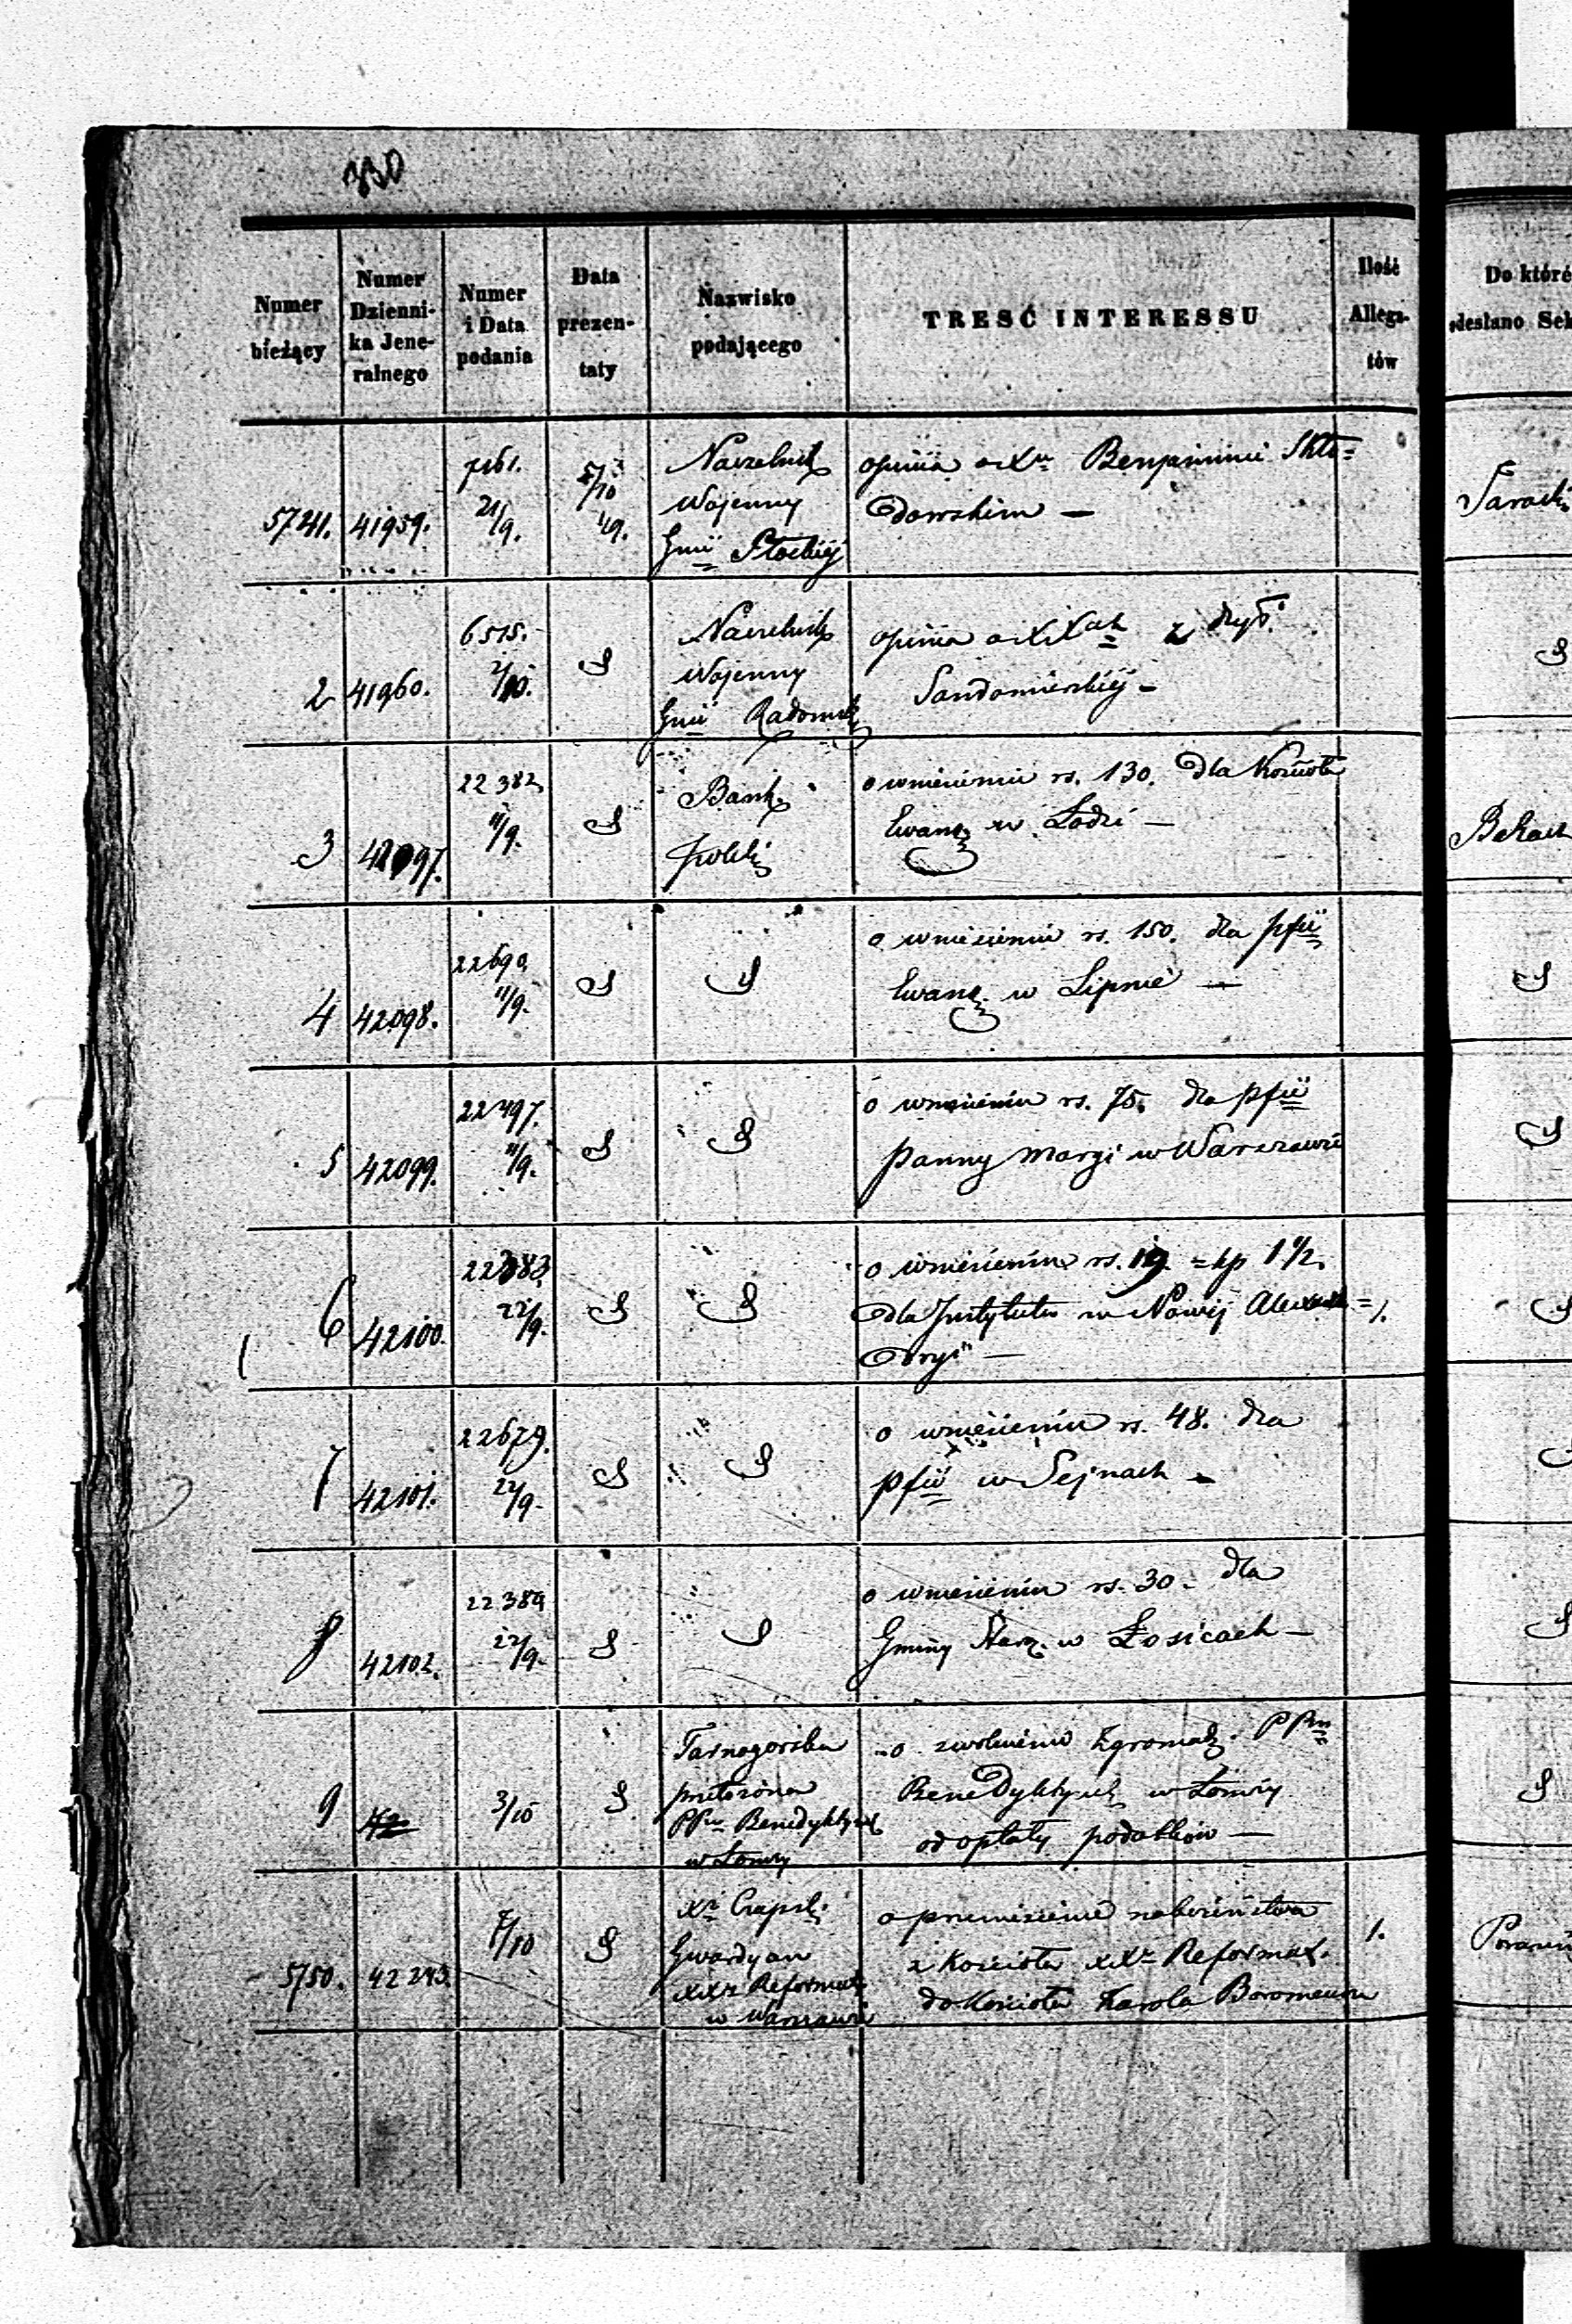 330
Numer bieżący
Numer Dzienni-ka Jene-ralnego
Numer i Data podania
Data prezen-taty
Nazwisko podającego
TRESĆ INTERESSU
Ilość Allega-tów
Do któré
odesłano Sek
5741. 41959. 7161. 21/9. 5/10 49. Naczelnik Wojenny Gnii Płockiéj
opinia o Xu Benjaminie Skło=
dowskim —
2 41960. 6515. 2/10. S Naczelnik Wojenny Gnii Radomsk
opinia o XXach z dyö.
Sandomierskiéj —
3 42097. 22382 11/9. S Bank Polski
o wniesieniu rs. 130. dla Kościoła
Ewang. w Łodzi —
4 42098. 22690 11/9. S S
o wniesieniu rs. 150. dla pfii
Ewang. w Lipnie —
5 42099. 22497. 11/9. S S
o wniesieniu rs. 75. dla pfii
Panny Maryi w Warszawie
6 42100. 22383. 22/9. S S
o wniesieniu rs. 19. = kp 1 1/2.
dla Instytutu w Nowéj Alexan=
dryi — 1.
7 42101. 22679. 22/9. S S
o wniesieniu rs. 48. dla
pfii w Sejnach —
8 42102. 22389 22/9. S S
o wniesieniu rs. 30. dla
Gminy Starz. w Łosicach —
9 3/10 S Tarnogorska przełożona PPn Benedyktynek w Łomży
o zwolnieniu Zgromadz. PPn
Benedyktynek w Łomży
od opłaty podatków —
5750. 42243. 7/10 S Xi Czapski Gwardyan XXr Reformat w Warszawie
o przeniesienie nabożeństwa
z Kościoła XXr Reformat.
do Kościoła Karola Boromeusza
1.